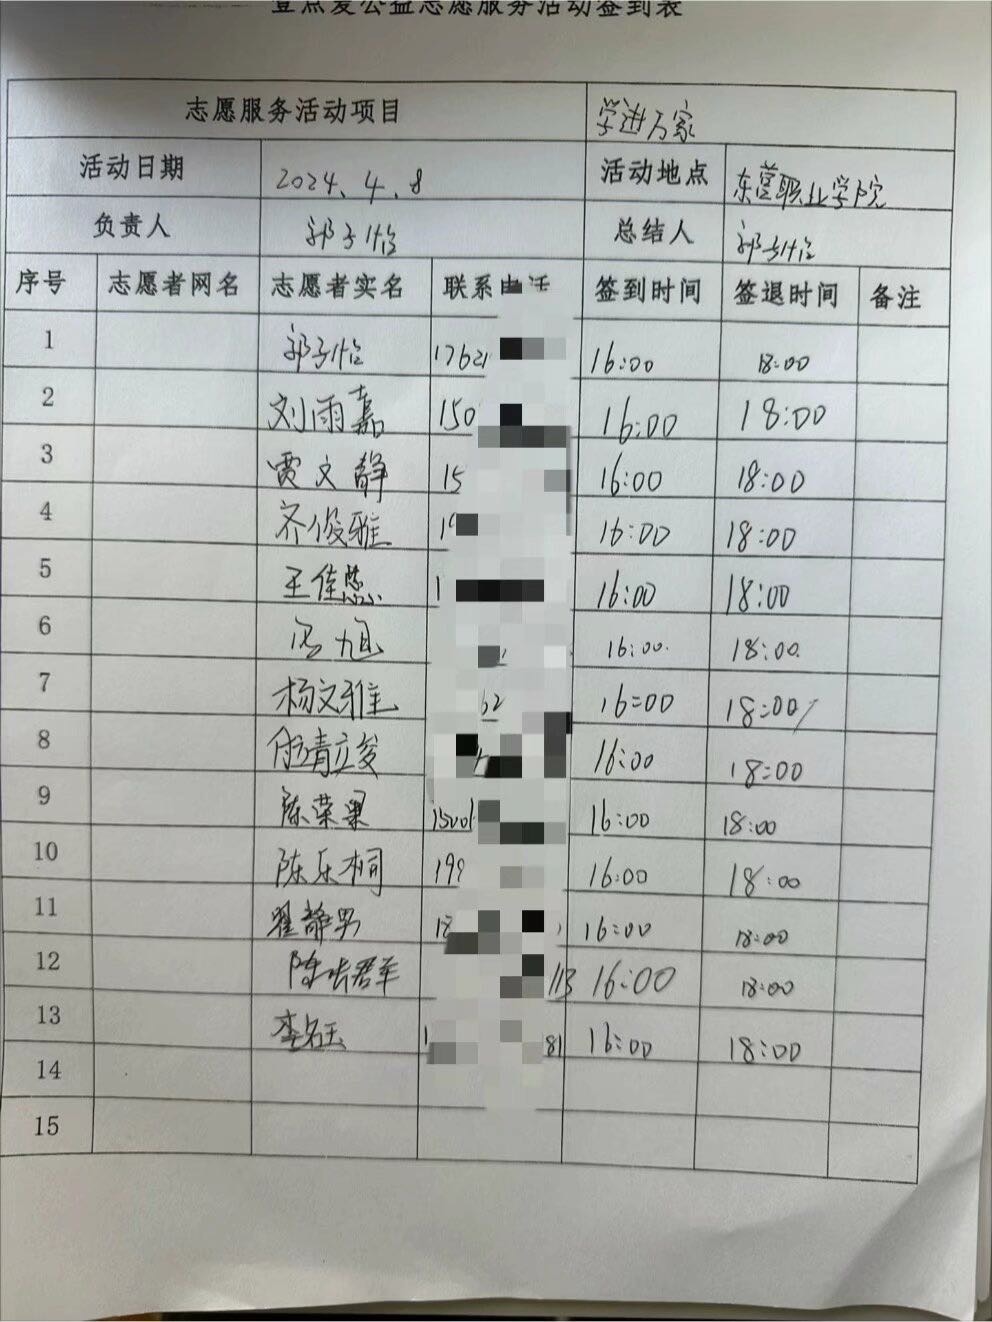 壹点爱公益志愿服务活动签到表
志愿服务活动项目 学进万家
活动日期 2024.4.8 活动地点 东营职业学院
负责人 郭子怡 总结人 郭子怡
序号 志愿者网名 志愿者实名 联系电话 签到时间 签退时间 备注
1 郭子怡 17621 16:00 18:00
2 刘雨嘉 150 16:00 18:00
3 贾文静 15 16:00 18:00
4 齐俊雅 16:00 18:00
5 王佳慧 1 16:00 18:00
6 16:00 18:00
7 杨文雅 62 16:00 18:00
8 16:00 18:00
9 陈荣果 1500 16:00 18:00
10 陈乐桐 199 16:00 18:00
11 翟静男 18 16:00 18:00
12 113 16:00 18:00
13 李钰 1 81 16:00 18:00
14
15